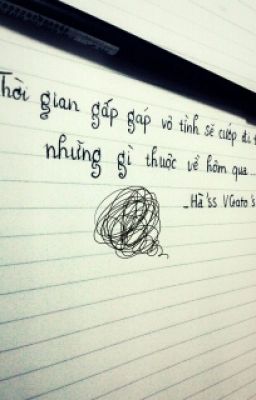 Thời gian gấp gáp vô tình sẽ cướp đi
những gì thuộc về hôm qua...
_Hà'ss VGato's